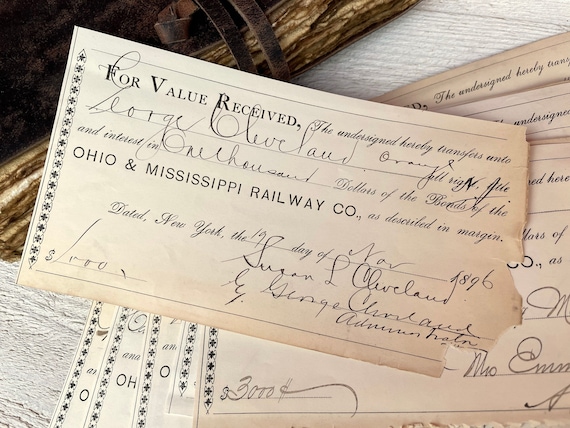 FOR VALUE RECEIVED, The undersigned hereby transfers unto
George Cleveland Orange N.J.
full right, title
and interest in One thousand Dollars of the Bonds of the
OHIO & MISSISSIPPI RAILWAY CO., as described in margin.
Dated, New York, the day of Nov 1896
$1,000
Susan L Cleveland
By George Cleveland
Administrator
ED, The undersigned hereby trans
CO., as
$3000
Mrs Emm
OHIO
OH